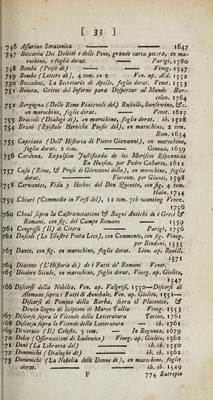 [ 33 ]
746 Assarino Stratonica — 1647
747 Beccaria Dei Delitti e delle Pene, grande carta pecora, en ma-
rochino, e foglie dorat. — Parigi, 1780
748 Bembo (Prose di) — Vineg. 1547
749 Bembo (Lettere di), 4 tom. in 2 Ven. ap. Ald. 1552
750 Boccacci, Fiammetta La Secretario di Apollo, foglie dorat. Venez. 1653
751 Boneta, Gritos del Infierno para Despertar al Mundo Bar-
celon. 1764
752 Borgogna (Delle Rime Piacevoli del) Ruscelli, Sansovino, &c.
en marochino, foglie dorat. Vinez. 1627
753 Brucioli (Dialogi di), en marochino, foglie dorat. ib. 1528
754 Bruni (Epistole Heroiche Poesie del), en marochino, 2 tom.
Rom. 1634
755 Capriata (Dell' Historia di Pietro Giovanni), en marochino,
foglie dorat. 2 tom. Genova, 1639
756 Cardona, Expulsion Justificada de los Moriscos Espannoles
En Huesca, per Pedro Cabarte, 1612
757 Casa (Rime, & Prose di Giovanni della), en marochino, foglie
dorat. Fiorenz. per Giunti, 1598
758 Cervantes, Vida y Hechos del Don Quixote, con fig. 4 tom.
Haia, 1744
759 Chiari (Commedie in Versi del), 12 tom. 7th wanting Venez.
1756
760 Choul sopra la Castrametatione & Bagni Antichi de i Greci &
Romani, con fig. del Campo Romano — 1559
761 Congresso (Il) di Citera — Parigi, 1768
762 Dafosli (Lo Illustre Poeta Ceco), con Commento, con fig. Vineg.
per Bendoni, 1535
763 Dante, con fig. en marochino, foglie dorat. Lion. ap. Rovill.
1571
764 Diacono (L'Historia di) de i Fatti de' Romani Venet.
765 Diodoro Siculo, en marochino, foglie dorat. Vineg. ap. Giolito,
1547
766 Discorsi della Nobilita, Ven. ap. Valgrisi, 1550—Discorsi di
Alemanni sopra i Fatti di Annibale, Ven. ap. Giolito, 1551—
Discorsi di Pompeo della Barba, sopra il Platonico, &
Divin Sogno di Scipione di Marco Tullio Vineg. 1553
767 Discorso sopra le Vicende della Letteratura Turino, 1761
768 Discorso sopra le Vicende della Letteratura — ib. 1761
769 Divorzio (Il) Celeste, 3 tom. — In Regunea, 1679
770 Dolce (Osservationi di Ludovico) Vineg. ap. Giolito, 1562
771 Doni (La Libreria del) — ib. ib. 1550
772 Domenichi (Dialoghi di) — ib. ib. 1562
773 Domenichi (La Nobilta delle Donne di), en marochino, foglie
dorat. — ib. ib. 1549
F 774 Eutropio